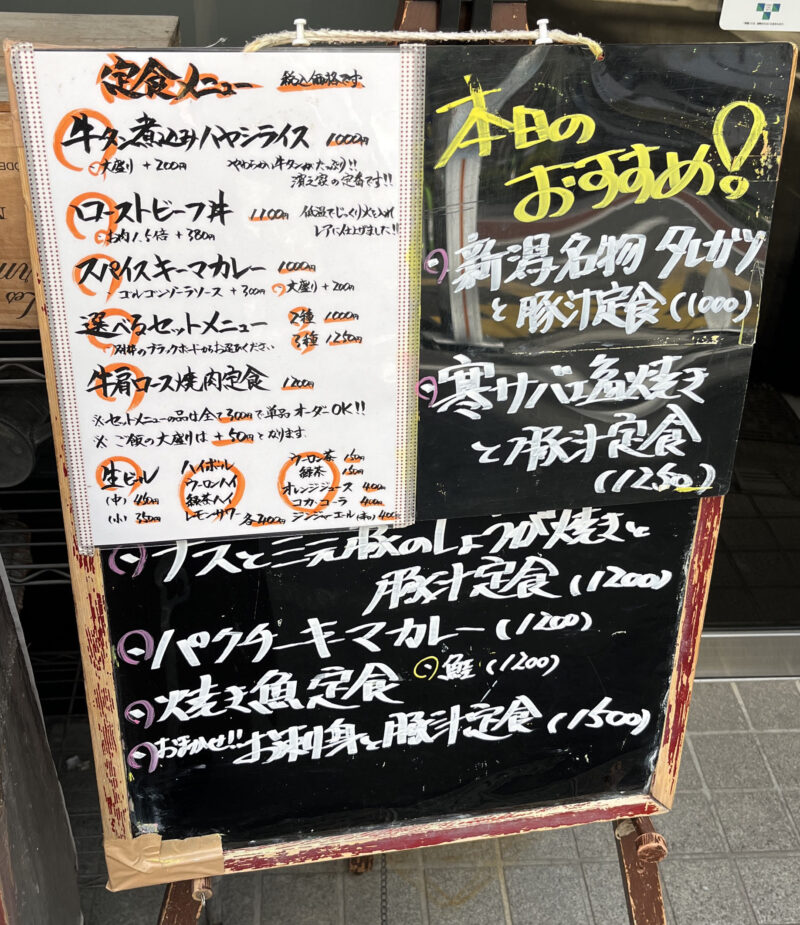 定食メニュー 税込価格です
牛タン煮込みハヤシライス 1000円
大盛り +200円 やわらかい牛タンがたっぷり!!
濱之家の定番です!!
ローストビーフ丼 1100円 低温でじっくり火を入れ
お肉1.5倍 +380円 レアに仕上げました!!
スパイスキーマカレー 1000円
ゴルゴンゾーラソース +300円 大盛り +200円
選べるセットメニュー 2種 1000円
別枠のブラックボードからお選びください 3種 1250円
牛肩ロース焼肉定食 1200円
※セットメニューの品は全て300円で単品オーダーOK!!
※ご飯の大盛りは +50円となります
生ビール
(中) 450円
(小) 350円
ハイボール
ウーロンハイ
緑茶ハイ
レモンサワー 各400円
ウーロン茶 150円
緑茶 150円
オレンジジュース 400円
コカ・コーラ 400円
ジンジャーエール 400
本日の
おすすめ!
新潟名物 タレカツ
と豚汁定食 (1000)
寒サバ塩焼き
と豚汁定食
(1250)
ナスと三元豚のしょうが焼きと
豚汁定食 (1200)
パクチーキーマカレー (1200)
焼き魚定食 鮭 (1200)
おまかせ!! お刺身と豚汁定食 (1500)